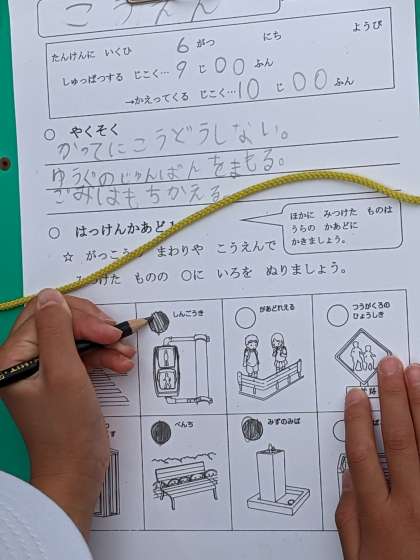 こうえん
たんけんに いくひ 6 がつ にち ようび
しゅっぱつする じこく… 9 じ 00 ふん
→かえってくる じこく… 10 じ 00 ふん
○ やくそく
かってにこうどうしない。
ゆうぐのじゅんばんをまもる。
ごみはもちかえる
○ はっけんかあど
ほかに みつけた ものは
うらの かあどに
かきましょう。
☆ がっこう まわりや こうえんで
みつけた ものの ○に いろを ぬりましょう。
しんごうき
があどれえる
つうがくろの
ひょうしき
べんち
みずのみば